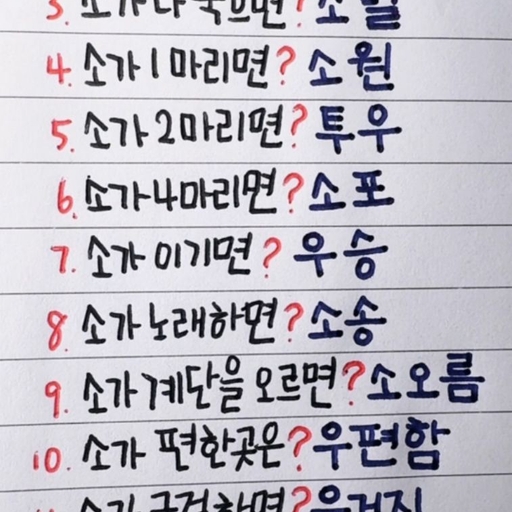 3. 소가 다 죽으면? 소멸
4. 소가 1마리면? 소원
5. 소가 2마리면? 투우
6. 소가 4마리면? 소포
7. 소가 이기면? 우승
8. 소가 노래하면? 소송
9. 소가 계단을 오르면? 소오름
10. 소가 편한곳은? 우편함
소가 구걸하면? 우거지